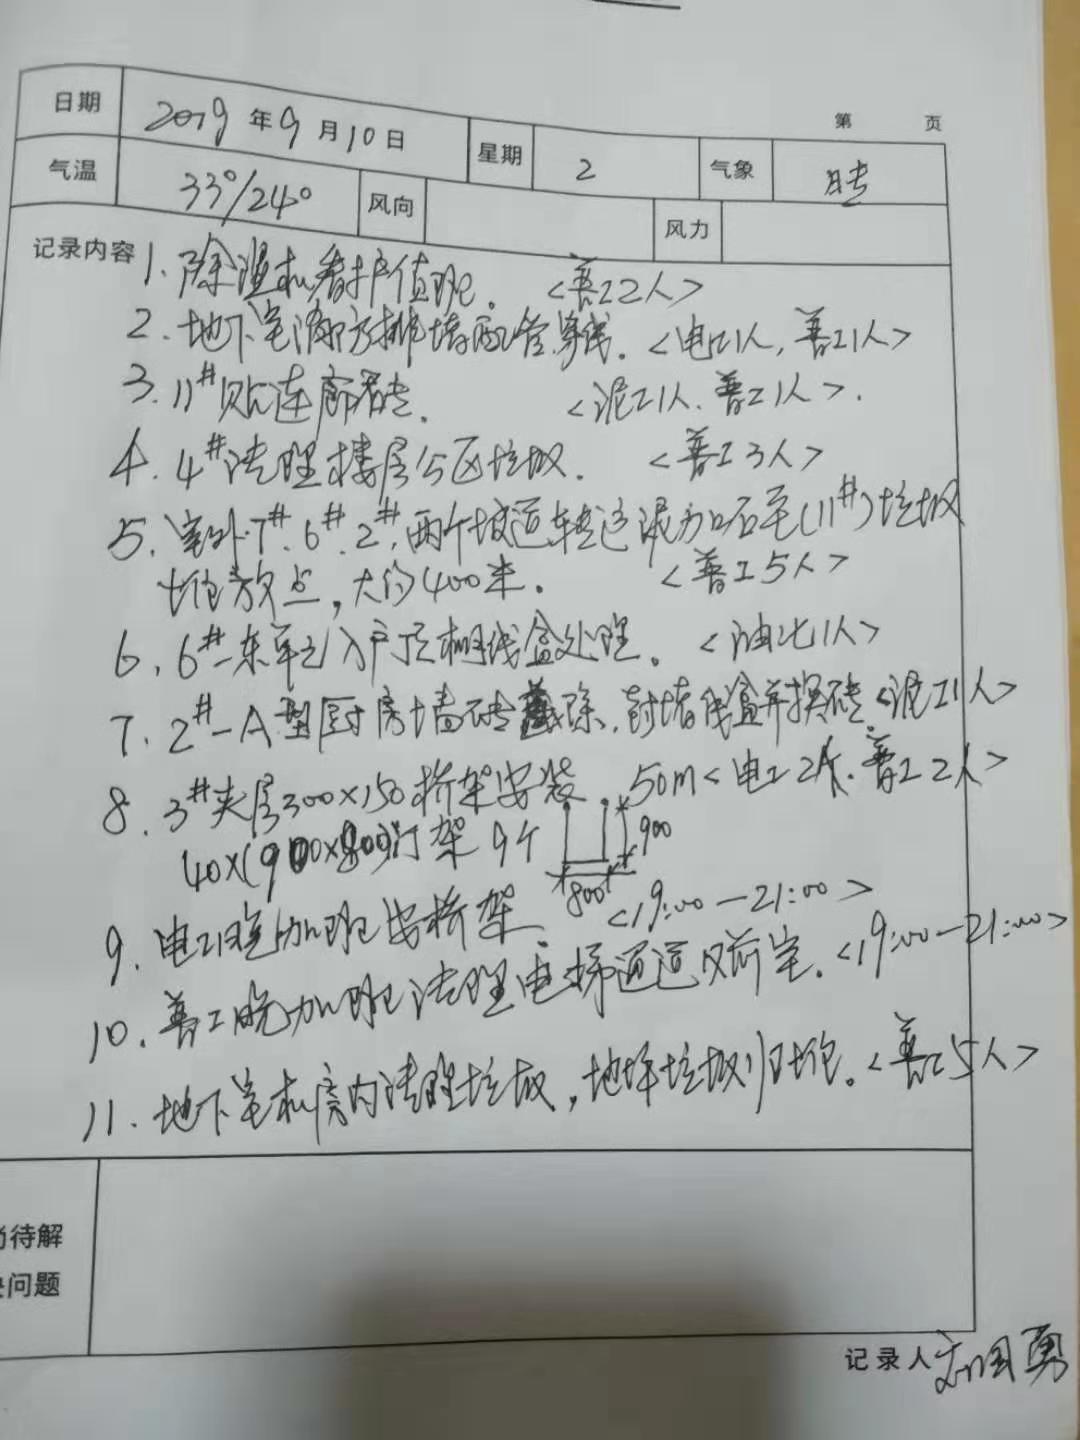 第 页
日期 2019年9月10日 星期 2 气象 晴
气温 33°/24° 风向 风力
记录内容
1. 除渣机看护值班。 <普工2人>
2. 地下室消防排堵配管穿线。<电工1人,普工1人>
3. 11#贴连廊砖。 <泥工1人、普工1人>.
4. 4#清理楼层公区垃圾. <普工3人>
5. 室外7#、6#、2#,两个坡道转运混加石至(11#)垃圾
堆放点,大约400米. <普工5人>
6. 6#-东单元入户顶棚线盒处理。<油工1人>
7. 2#-A型厨房墙砖 除、封堵线盒并换砖<泥工1人>
8. 3#夹层300×150桥架安装. 50m<电工2人、普工2人>
40×(900×800) 架 9个
900
800
9. 电工晚加班安桥架. <19:00-21:00>
10. 普工晚加班清理电梯通道及前室.<19:00-21:00>
11. 地下室机房内清理垃圾,地坪垃圾归堆。<普工5人>
待解
问题
记录人 刘国勇